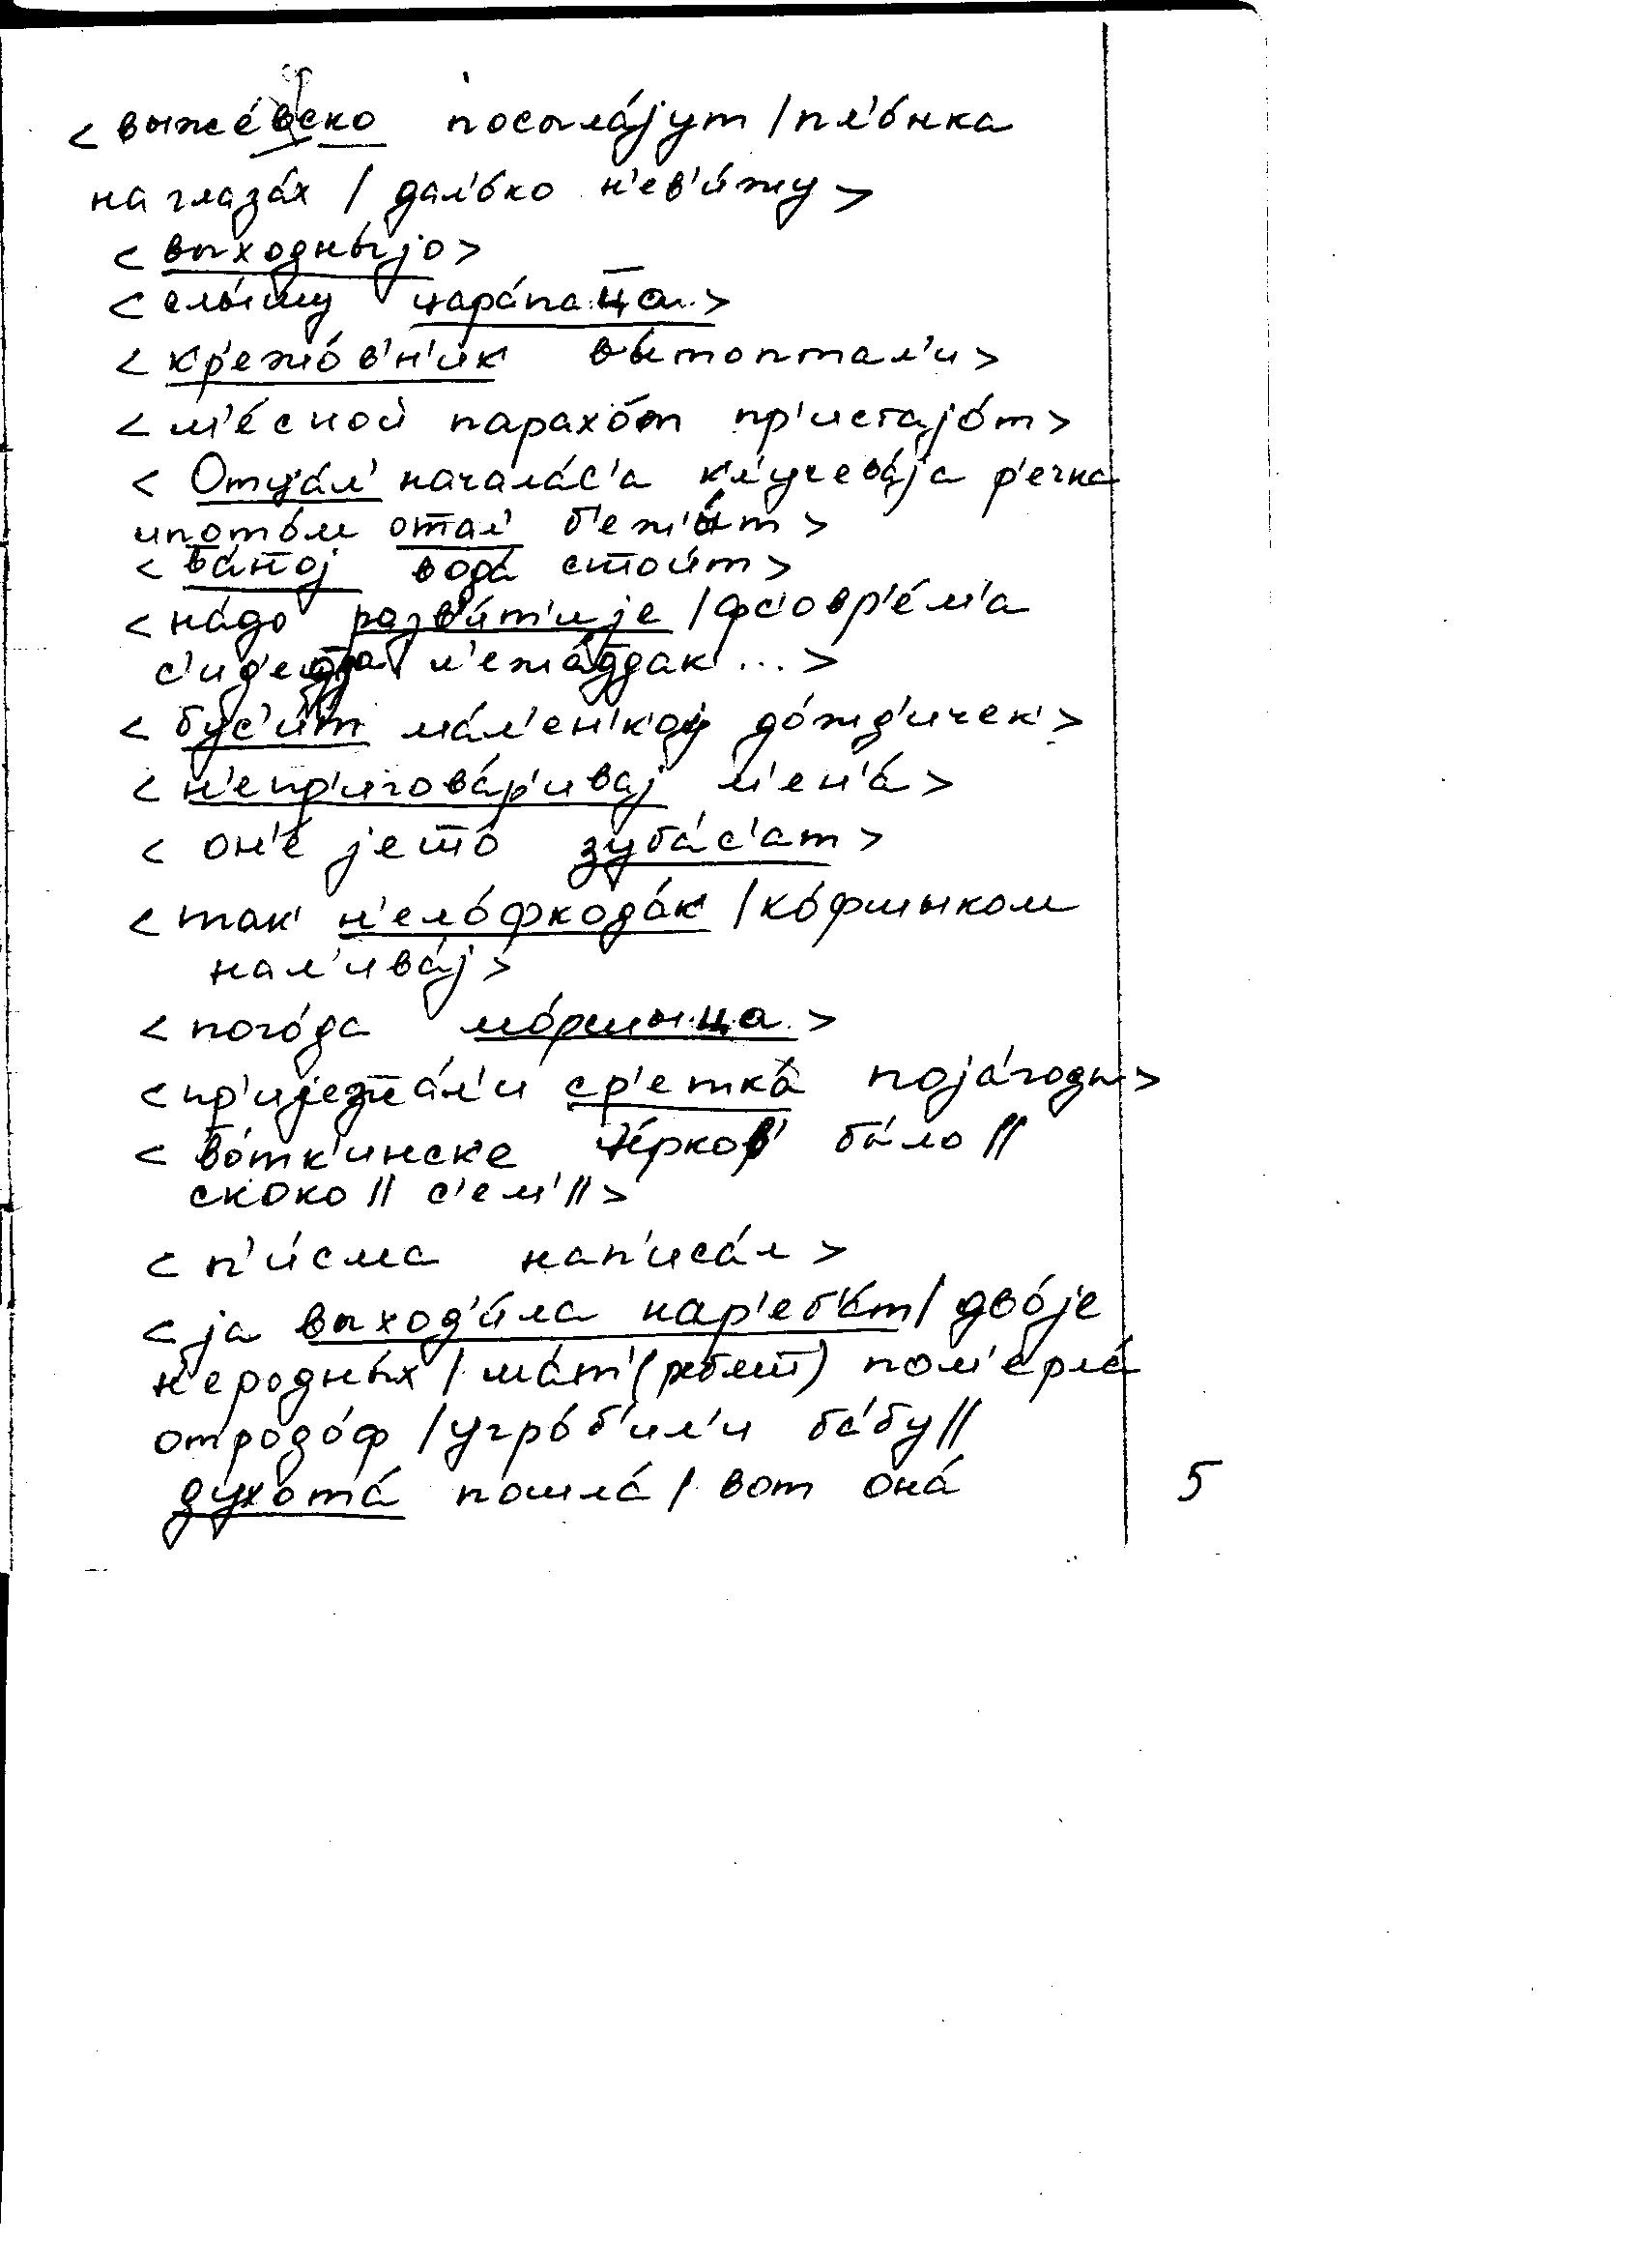 < выже́вско посыла́јут / пл'о́нка
на глаза́х / дал'о́ко н'ев'и́жу >
< выходны́јо >
< слы́шу цара́паца >
< кр'ежо́в'н'ик вы́топтал'и >
< м'е́сной парахо́т пр'истајо́т >
< Отту́ал' начала́с'а кл'учева́ја р'ечка
ипото́м отал' б'ежи́т >
< ва́нној вода́ стои́т >
< на́до разв'и́т'ије / фс'овр'е́м'а
с'ид'е л'ежа́ддак ... >
< бус'и́т ма́л'ен'кој до́жд'ичек >
< н'епр'игова́р'ивај м'ен'а́ >
< он'е́ јето́ зуба́с'ат >
< так н'ело́фкода́к / ко́фшыком
нал'ива́ј >
< пого́да мо́ршыца >
< пр'ијезжа́л'и ср'етка́ појагоды >
< во́тк'инске це́рков' бы́ло ||
скоко || с'ем' || >
< п'и́сма нап'иса́л >
< ја выход'и́ла нар'еб'а́т / дво́је
н'еродны́х / ма́т' (ребят) пом'ерла́
отродо́ф / угро́б'ил'и ба́бу ||
духота́ пошла́ / вот она́
5